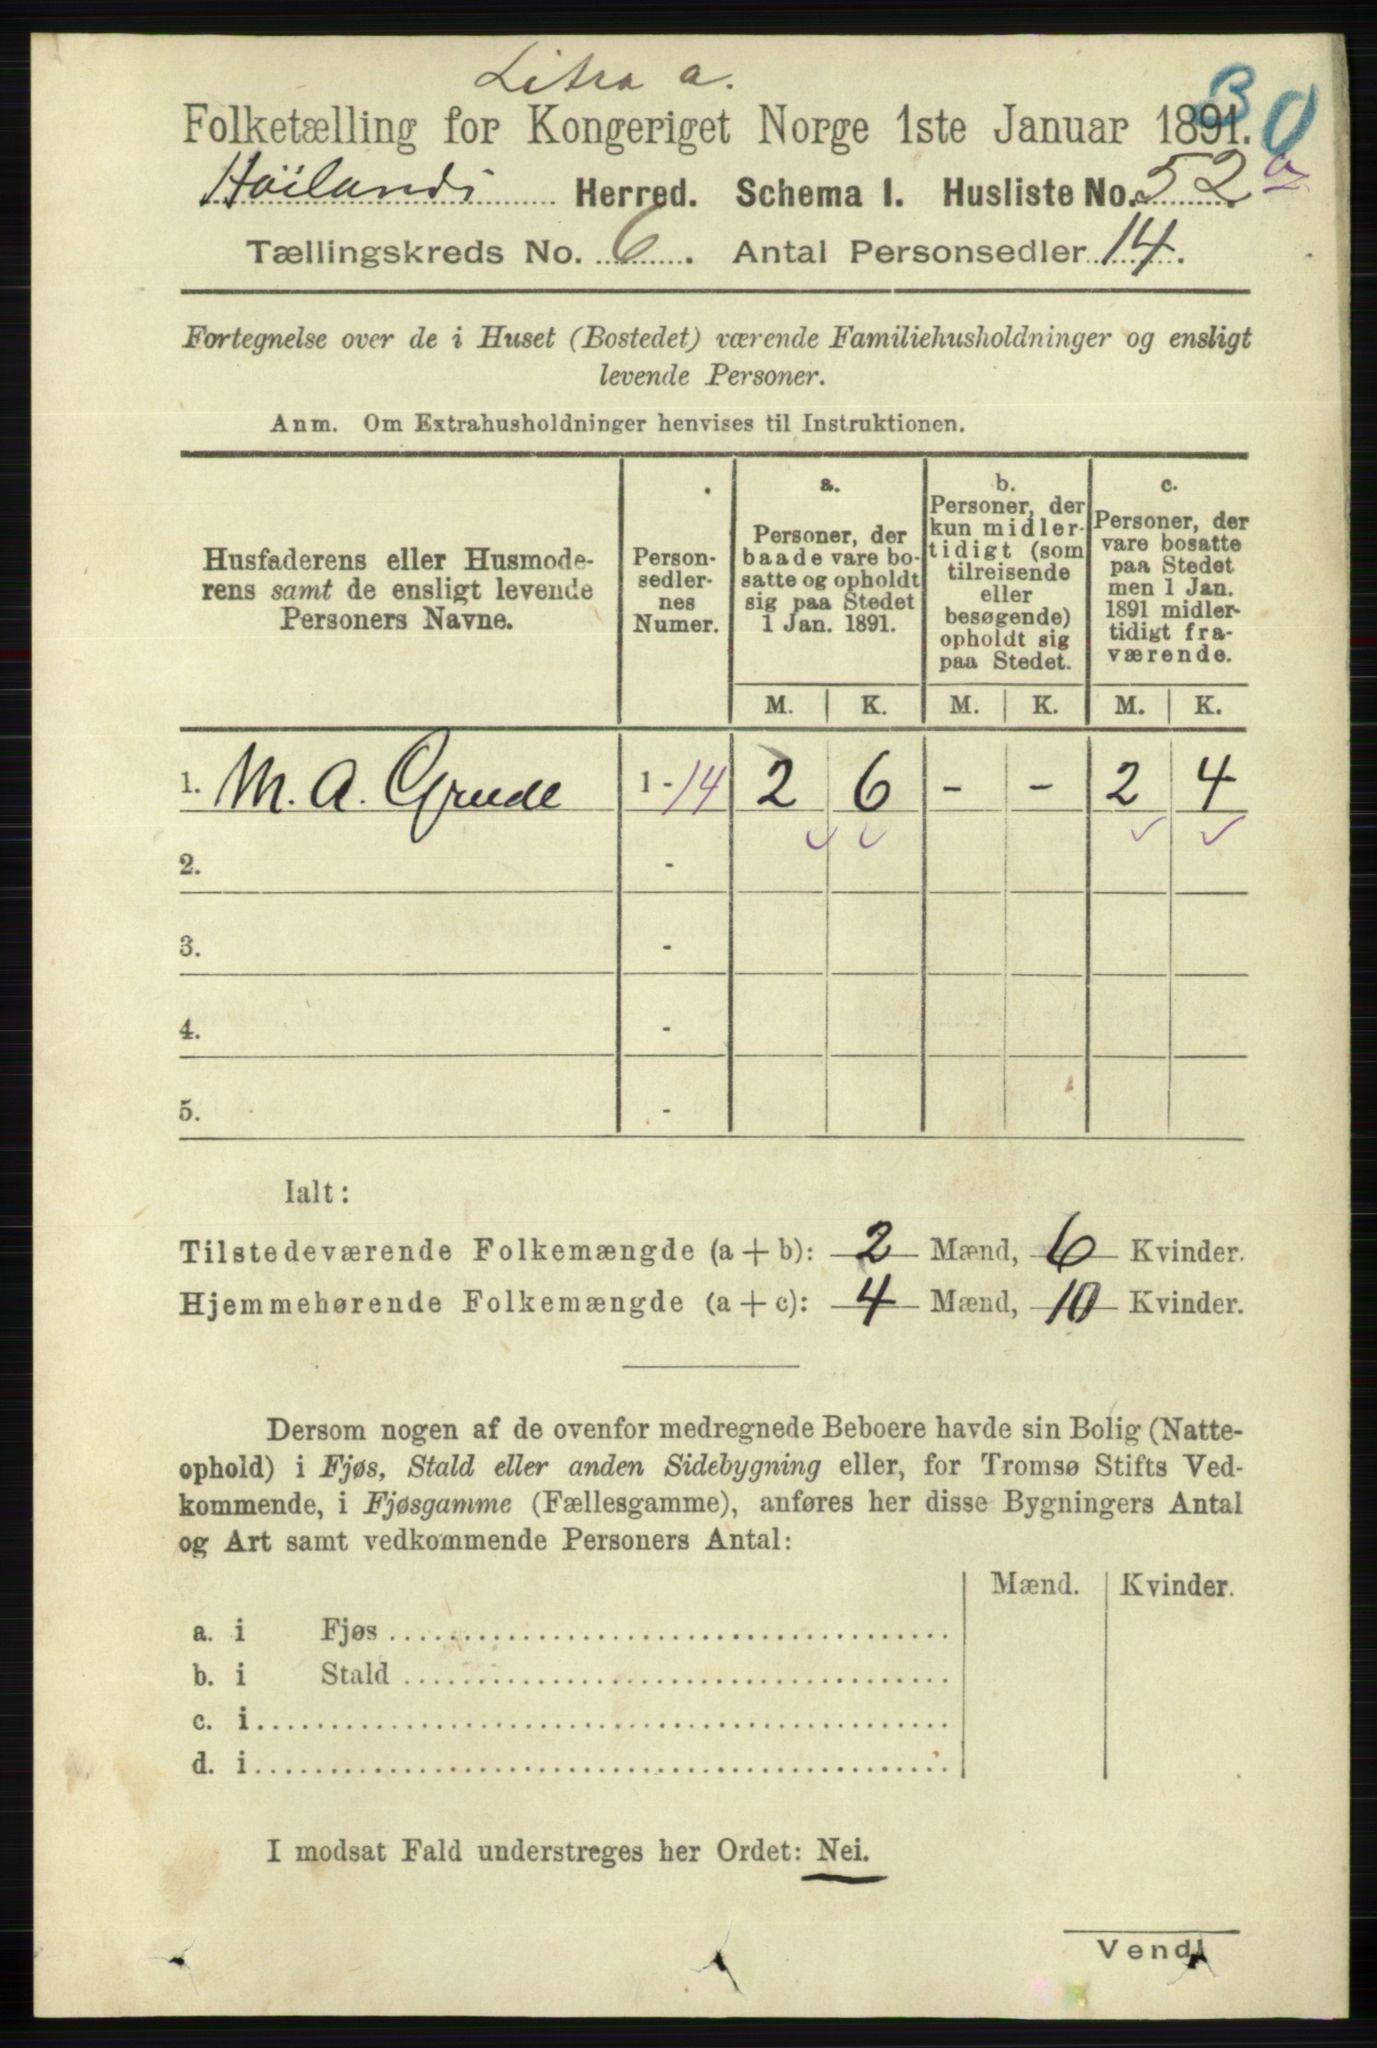 Litra a.
30
Folketælling for Kongeriget Norge 1ste Januar 1891.
Höilands Herred. Schema I. Husliste No. 52 a
Tællingskreds No. 6. Antal Personsedler 14.
Fortegnelse over de i Huset (Bostedet) værende Familiehusholdninger og ensligt
levende Personer.
Anm. Om Extrahusholdninger henvises til Instruktionen.
Husfaderens eller Husmode-
rens samt de ensligt levende
Personers Navne.
Person-
sedler-
nes
Numer.
a.
Personer, der
baade vare bo-
satte og opholdt
sig paa Stedet
1 Jan. 1891.
b.
Personer, der
kun midler-
tidigt (som
tilreisende
eller
besøgende)
opholdt sig
paa Stedet.
c.
Personer, der
vare bosatte
paa Stedet
men 1 Jan.
1891 midler-
tidigt fra-
værende.
M. K. M. K. M. K.
1. M. A. Grude 1 - 14 2 6 - - 2 4
2. -
3. -
4. -
5. -
Ialt:
Tilstedeværende Folkemængde (a + b): 2 Mænd, 6 Kvinder.
Hjemmehørende Folkemængde (a + c): 4 Mænd, 10 Kvinder.
Dersom nogen af de ovenfor medregnede Beboere havde sin Bolig (Natte-
ophold) i Fjøs, Stald eller anden Sidebygning eller, for Tromsø Stifts Ved-
kommende, i Fjøsgamme (Fællesgamme), anføres her disse Bygningers Antal
og Art samt vedkommende Personers Antal:
Mænd. Kvinder.
a. i Fjøs
b. i Stald
c. i
d. i
I modsat Fald understreges her Ordet: Nei.
Vend!